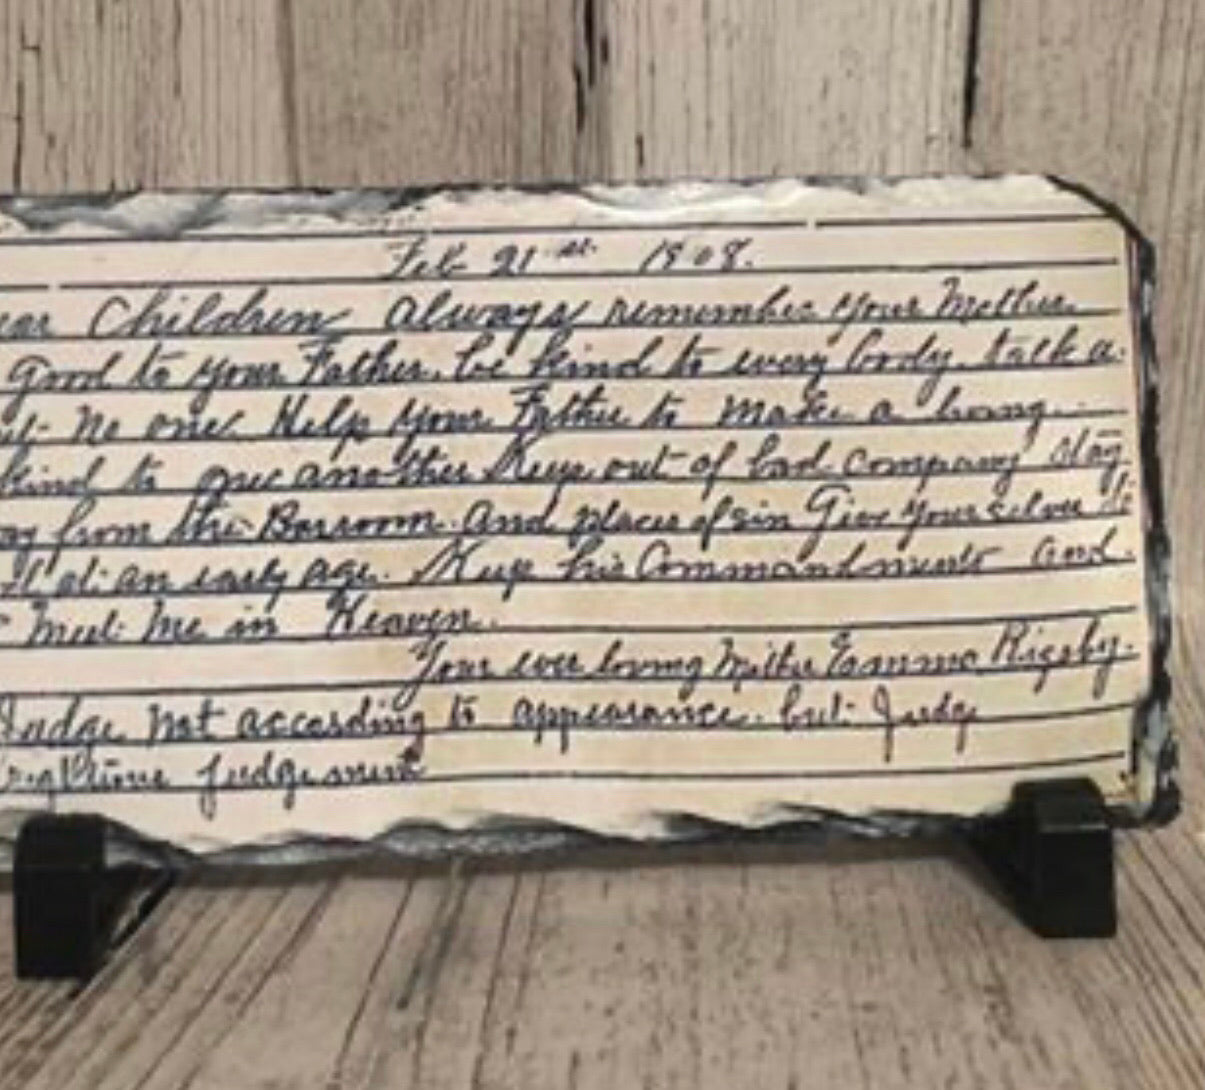 Feb 21st 1908.
ear Children Always remember your Mother
Good to your Father. be kind to every body. talk a.
ut no one Help your Father to make a living.
kind to one another Keep out of bad company stay
ay from the Barroom. And places of sin Give yourselves to
at an early age. Keep his Commandments and
Meet Me in Heaven.
Your ever loving Mother Emma Rigsby.
Judge not according to appearance. but Judge
righteous judgement